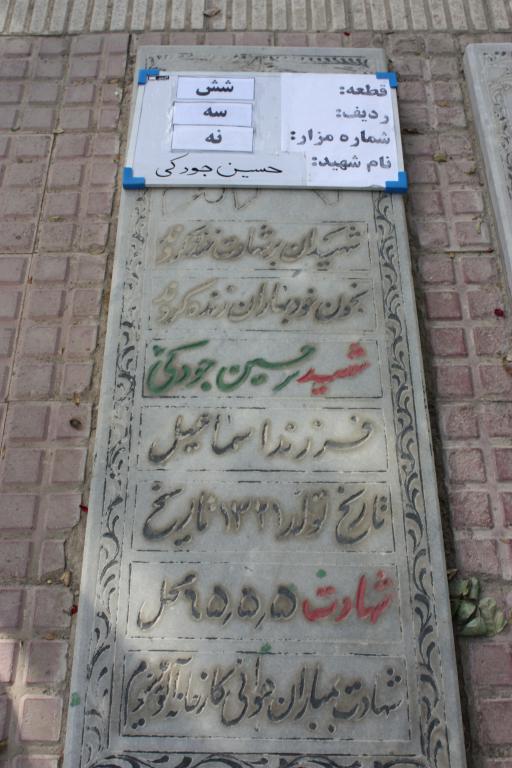 قطعه: شش
ردیف: سه
شماره مزار: نه
نام شهید: حسین جودکی
شهیدان بر شهادت خنده کردند
بخون خود بهاران زنده کردند
شهید حسین جودکی
فرزند اسماعیل
تاریخ تولد ۱۳۲۱ تاریخ
شهادت ۶۵٫۵٫۵ محل
شهادت بمباران هوائی کارخانه آلومینیوم